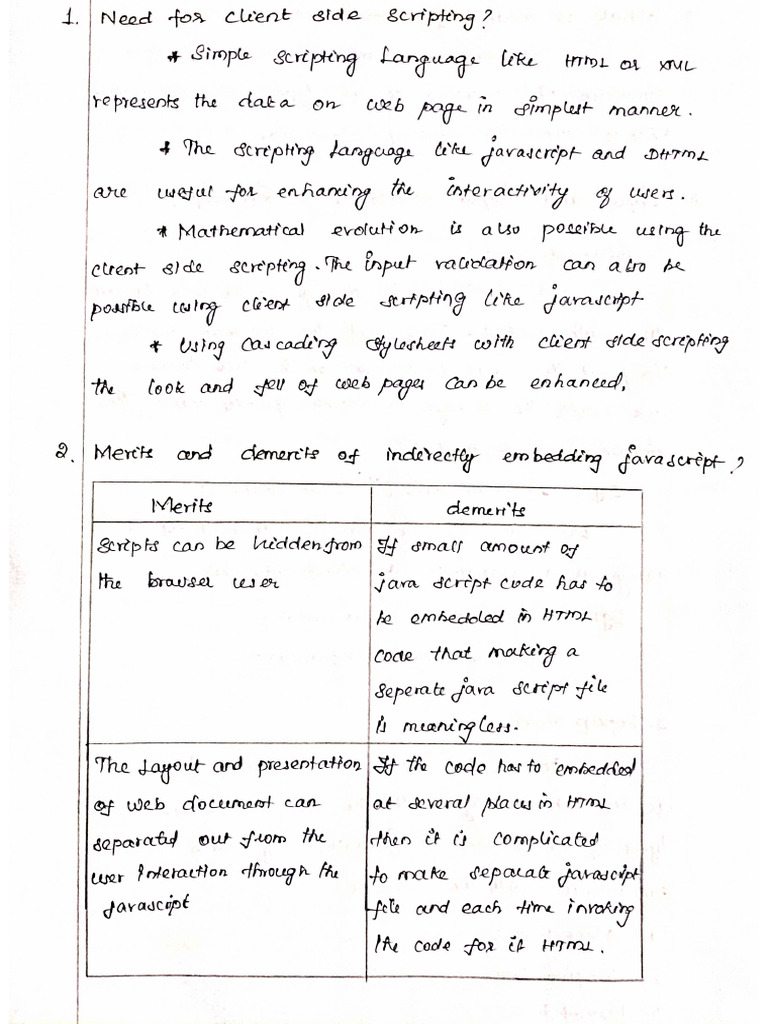 1. Need for client side scripting?
* Simple scripting Language like HTML or XML
represents the data on web page in simplest manner.
* The scripting Language like javascript and DHTML
are useful for enhancing the interactivity of users.
* Mathematical evolution is also possible using the
client side scripting. The input validation can also be
possible using client side scripting like javascript
* Using Cascading stylesheets with client side scripting
the look and feel of web pages can be enhanced.
2. Merits and demerits of inderectly embedding javascript?
Merits
Scripts can be hidden from
the browser user
demerits
If small amount of
java script code has to
be embedded in HTML
code that making a
seperate java script file
is meaningless.
The Layout and presentation
of web document can
separated out from the
user interaction through the
Javascipt
If the code has to embedded
at several places in HTML
then it is complicated
to make separate javascript
file and each time invoking
the code for it HTML.